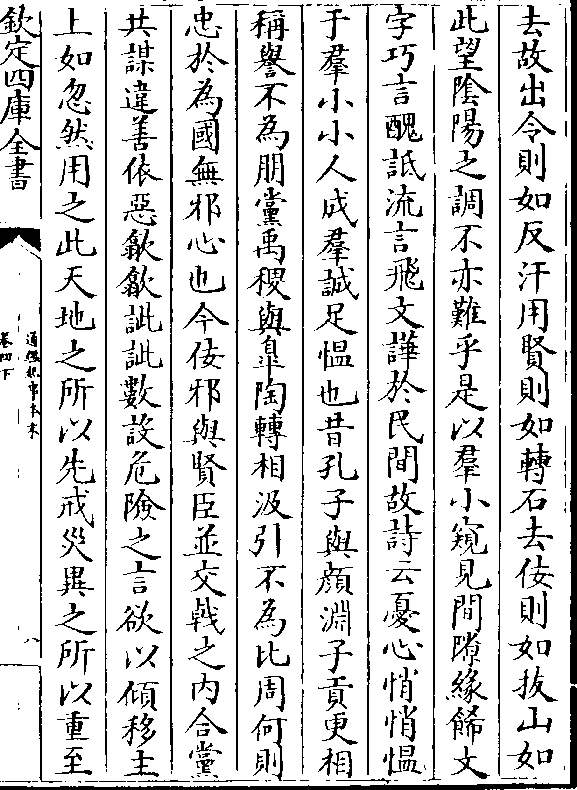 去故出令則如反汗用賢則如轉石去佞則如拔山如
此望陰陽之調不亦難乎是以羣小窺見間隙緣餙文
字巧言醜詆流言飛文譁於民間故詩云憂心悄悄愠
于羣小小人成羣誠足愠也昔孔子與顔淵子貢更相
稱譽不為朋黨禹稷與臯陶轉相汲引不為比周何則
忠於為國無邪心也今佞邪與賢臣並交㦸之内合黨
共謀違善依惡歙歙訿訿數設危險之言欲以傾移主
上如忽然用之此天地之所以先戒災異之所以重至
欽定四庫全書
通鑑紀事本末
卷四下
八